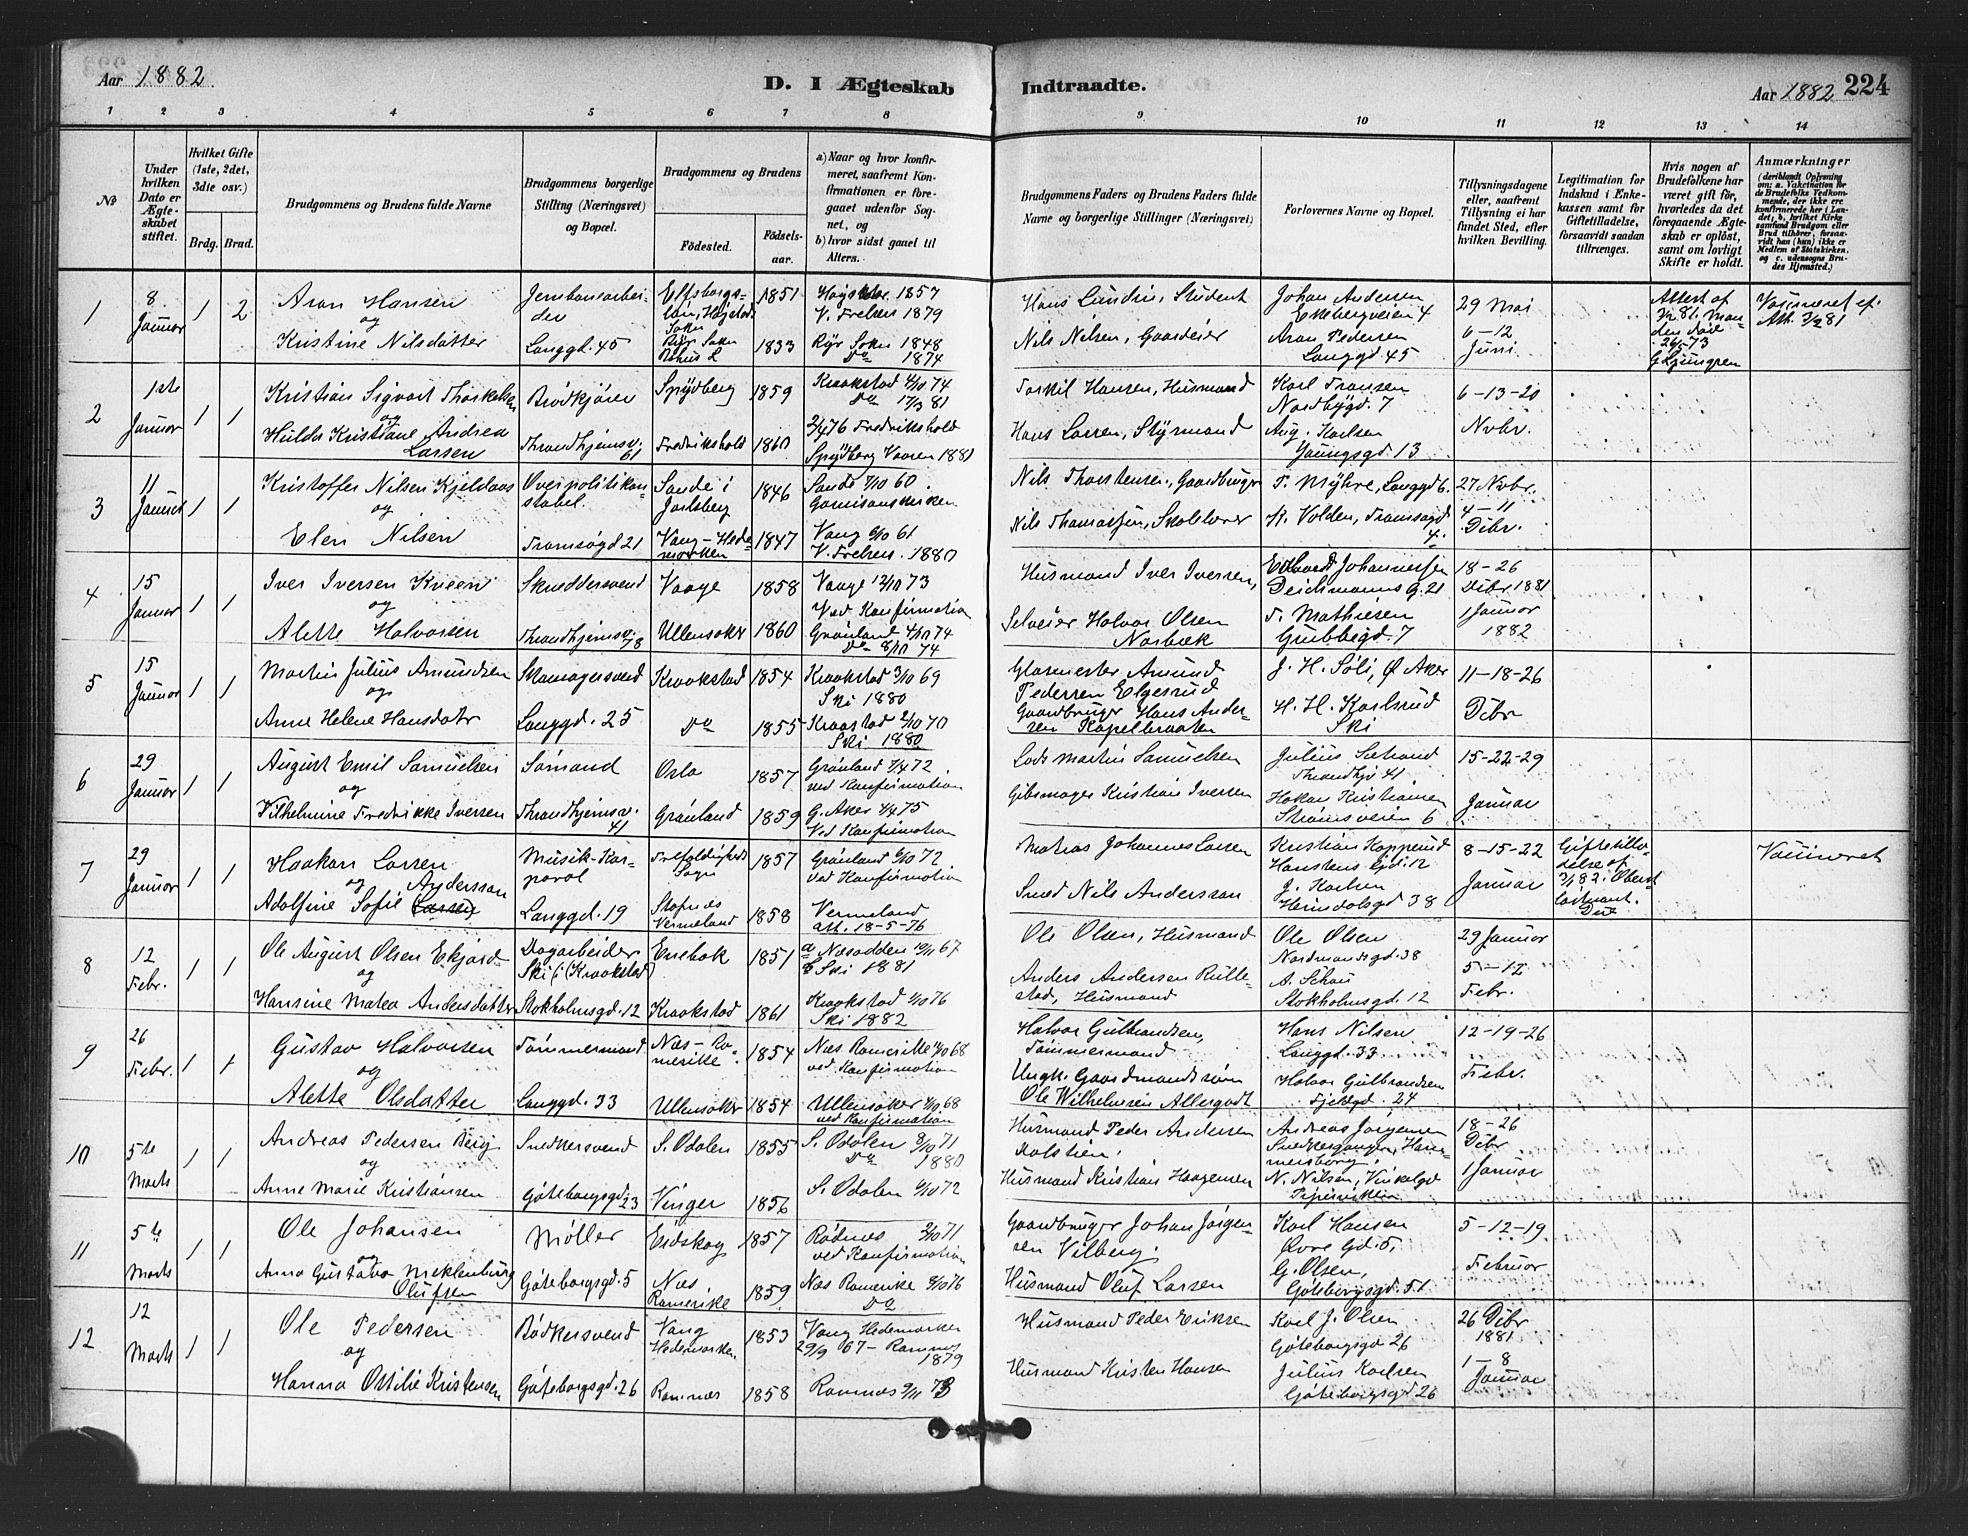 Aar 1882.
D. I Ægteskab
Indtraadte.
Aar 1882
224
1 2 3 4 5 6 7 8
9 10 11 12 13 14
No
Under hvilken Dato er Ægteskabet stiftet.
Hvilket Gifte (1ste, 2det, 3die osv.)
Brdg. Brud.
Brudgommens og Brudens fulde Navne
Brudgommens borgerlige Stilling (Næringsvei) og Bopæl.
Brudgommens og Brudens
Födested.
Födsels-aar.
a) Naar og hvor konfirmeret, saafremt Konfirmationen er foregaaet udenfor Sognet, og
b) hvor sidst gaaet til Alters.
Brudgommens Faders og Brudens Faders fulde Navne og borgerlige Stillinger (Næringsvei)
Forlovernes Navne og Bopæl.
Tillysningsdagene eller, saafremt Tillysning ei har fundet Sted, efter hvilken Bevilling.
Legitimation for Indskud i Enkekassen samt for Giftetilladelse, forsaavidt saadan tiltrænges.
Hvis nogen af Brudefolkene har været gift för, hvorledes da det foregaaende Ægteskab er oplöst, samt om lovligt Skifte er holdt.
Anmærkninger
1 8 Januar 1 2
Aron Hansen
og
Kristine Nilsdatter
Jernbanearbeider
Langgd. 45
1851
1833
1857
V. Frelsers 1879
Ryr Sokn 1848
Do 1874
Hans Lundin, Student
Nils Nilsen, Gaardeier
Johan Andersen
Ekebergveien 4
Aron Pedersen
Langgd 45
29 Mai
6-12
Juni
Attest af
Vaccineret
2 1ste Januar 1 1
Kristian Sigvart Thorkelsen
og
Hulda Kristiane Andrea
Larsen
Brødkjører
Throndhjemsv. 61
Spydberg
Fredrikshald
1859
1860
Kraakstad 4/10 74
Do 17/3 81
Fredrikshald
Spydberg Vaaren 1881
Torkil Hansen, Husmand
Hans Larsen, Styrmand
Karl Fransen
Nordbygd. 7
Aug. Karlsen
Youngsgd. 13
6-13-20
Nvbr.
3 11 Januar 1 1
Kristoffer Nilsen Kjeldaas
og
Elen Nilsen
Overpolitikonstabel.
Tromsøgd 21
Sande i Jarlsberg
Vang-Hedemarken
1846
1847
Sande 7/10 60
Garnisonskirken
Vang 6/10 61
V. Frelsers. 1880
Nils Thorstensen, Gaardbruger
Nils Thomassen, Skolelærer
T. Myhre, Langgd 6.
N. Volden, Tromsøgd 4.
27 Nvbr.
4-11
Dcbr.
4 15 Januar 1 1
Iver Iversen Kveen
og
Alette Halvorsen
Skræddersvend
Throndhjemsv. 78
Vaage
Ullensaker
1858
1860
Vaage 12/10 73
Ved Konfirmation
Grønland 4/10 74
Do 8/10 74
Husmand Iver Iversen,
Selveier Halvor Olsen
Norbæk
Edvard Johannessen
Deichmanns G. 21
T. Mathiesen
Grubbegd. 7
18-26
Dcbr 1881
1 Januar
1882
5 15 Januar 1 1
Martin Julius Amundsen
og
Anne Helene Hansdatr
Skomagersvend
Langgd. 25
Kraakstad
Do
1854
1855
Kraakstad 3/10 69
Ski 1880
Kraakstad 2/10 70
Ski 1880
Glarmester Amund
Pedersen Elgesrud
Gaardbruger Hans Andersen
Kapelbraaten
J. H. Søli, Ø. Aker
H. H. Karlsrud
Ski
11-18-26
Dcbr
6 29 Januar 1 1
August Emil Samuelsen
og
Vilhelmine Fredrikke Iversen
Sømand
Throndhjemsv. 41
Oslo
Grønland
1857
1859
Grønland 7/4 72
ved Konfirmation
G. Aker 4/4 75
Ved Konfirmation
Lods Martin Samuelsen
Gibsmager Kristian Iversen
Julius Sæland
Throndhjv 41
Hakon Kristiansen
Strømsveien 6
15-22-29
Januar
7 29 Januar 1 1
Haakon Larsen
og Andersson
Adolfine Sofie Larsen
Musik-Korporal
Langgd. 19
Trefoldigheds Sogn
Vermeland
1857
1858
Grønland 6/10 72
ved Konfirmation
Vermeland
att. 18-5-76
Matias Johannes Larsen
Smed Nils Andersson
Kristian Kopperud
J. Karlsen
Heimdalsgd 38
8-15-22
Januar
Giftetilladelse af 3/1 82.
Vaccineret
8 12 Febr. 1 1
Ole August Olsen Ekjord
og
Hansine Matea Andersdatter
Dagarbeider
Ski i (Kraakstad)
Stokholmsgd. 12
Enebak
Kraakstad
1851
1861
a Næsodden 10/11 67
b Ski 1881
Kraakstad 1/10 76
Ski 1882
Ole Olsen, Husmand
Anders Andersen Rullestad, Husmand
Ole Olsen
Nordmandsgd. 38
A. Schau
Stokholmsgd. 12
29 Januar
5-12
Febr.
9 26 Febr. 1 1
Gustav Halvorsen
og
Alette Olsdatter
Tømmermand
Langgd. 33
Næs-Romerike
Ullensaker
1854
1854
Næs Romerike 1/10 68
ved Konfirmation
Ullensaker 4/10 68
ved Konfirmation
Halvor Gulbrandsen,
Tømmermand
Ungk. Gaardmandssøn
Ole Wilhelmsen Allergodt
Hans Nilsen
Langgd. 33
Halvor Gulbrandsen
Fjeldgd. 24
12-19-26
Febr.
10 5te Marts 1 1
Andreas Pedersen Berg
og
Anne Marie Kristiansen
Snedkersvend
Göteborgsgd 23
S. Odalen
Vinger
1855
1856
S. Odalen 8/10 71
Do 1880
S. Odalen 6/10 72
Husmand Peder Andersen
Husmand Kristian Haagensen
Andreas Jørgensen
Hammersborg
N. Nilsen, Vinkelgd
Pipervikken
18-26
Dcbr
1 Januar
11 5te Marts 1 1
Ole Johansen
og
Anna Gustava Meklenburg
Olufsen
Møller
Göteborgsgd. 5
Eidskog
Næs Romerike
1857
1859
Rødnes 2/10 71
ved Konfirmation
Næs Romerike 8/10 76
Do
Gaardbruger Johan Jørgensen Vilberg.
Husmand Oluf Larsen
Karl Hansen
Øvre Gd. 5,
G. Olsen,
Göteborgsgd. 51
5-12-19
Februar
12 12 Marts 1 1
Ole Pedersen
og
Hanna Ottilie Kristensen
Bødkersvend
Göteborgsgd. 26
Vang Hedemarken.
Ramnæs
1853
1858
Vang Hedemarken
29/9 67- Ramnæs
1879
Ramnæs 9/11 73
Husmand Peder Eriksen
Husmand Kristen Hansen
Karl J. Olsen
Göteborgsgd 26
Julius Karlsen
Göteborgsgd 26
26 Dcbr
1881
1-8
Januar